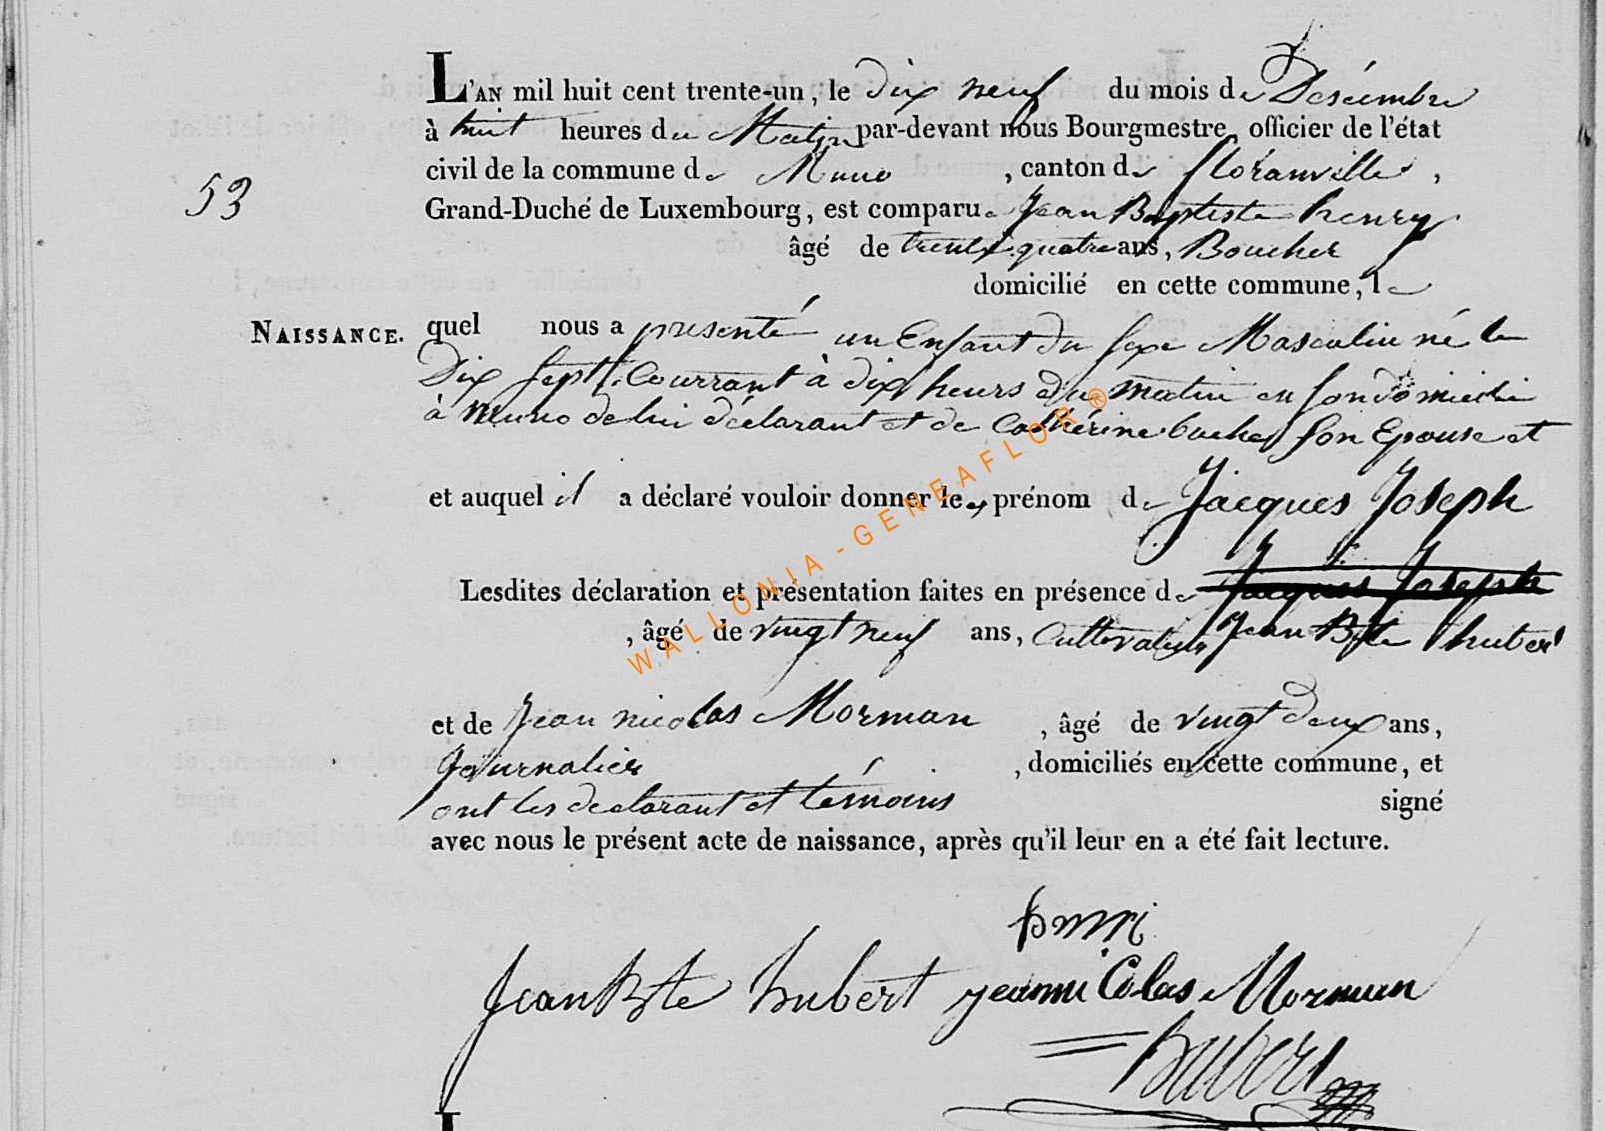 L'AN mil huit cent trente-un, le dix neuf du mois de Desécmbre
à huit heures du Matin par-devant nous Bourgmestre officier de l'état
civil de la commune de Muno , canton de floranville ,
53
Grand-Duché de Luxembourg, est comparu Jean Baptiste henry
âgé de trente quatre ans, Boucher
domicilié en cette commune, le
NAISSANCE. quel nous a presenté un Enfant du sexe Masculin né le
Dix sept Courrant à dix heurs du matin en son domicili
à Muno de lui déclarant et de Cathérine son Epouse et
et auquel il a déclaré vouloir donner les prénom de Jacques Joseph
Lesdites déclaration et présentation faites en présence de Jacques Joseph
, âgé de vingt neuf ans, Cultivateur Jean Bte hubert
et de Jean nicolas Morman , âgé de vingt deux ans,
Journalier , domiciliés en cette commune, et
ont les declarant et témoins signé
avec nous le présent acte de naissance, après qu'il leur en a été fait lecture.
henri
Jean Bte hubert jeanni Colas Morman
hubert
WALLONIA-GENEAFLOR®